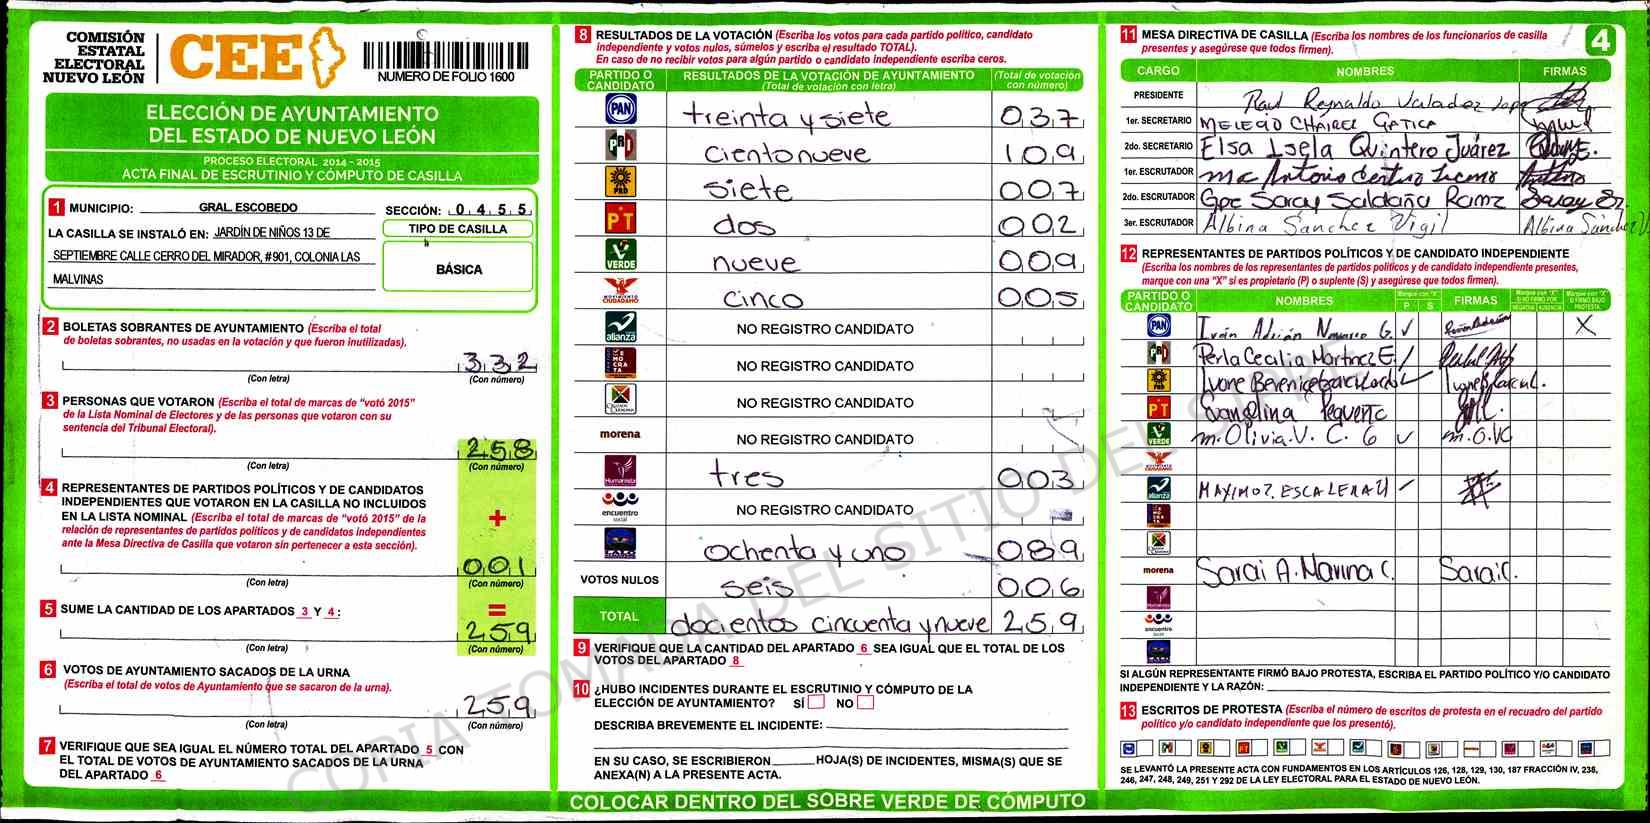 COMISIÓN
ESTATAL
ELECTORAL
NUEVO LEÓN
CEE
NUMERO DE FOLIO 1600
ELECCIÓN DE AYUNTAMIENTO
DEL ESTADO DE NUEVO LEÓN
PROCESO ELECTORAL 2014 - 2015
ACTA FINAL DE ESCRUTINIO Y CÓMPUTO DE CASILLA
1 MUNICIPIO: GRAL. ESCOBEDO SECCIÓN: 0 4 5 5
LA CASILLA SE INSTALÓ EN: JARDÍN DE NIÑOS 13 DE
SEPTIEMBRE CALLE CERRO DEL MIRADOR, #901, COLONIA LAS
MALVINAS
TIPO DE CASILLA
BÁSICA
2 BOLETAS SOBRANTES DE AYUNTAMIENTO (Escriba el total
de boletas sobrantes, no usadas en la votación y que fueron inutilizadas).
332
(Con letra) (Con número)
3 PERSONAS QUE VOTARON (Escriba el total de marcas de "votó 2015"
de la Lista Nominal de Electores y de las personas que votaron con su
sentencia del Tribunal Electoral).
258
(Con letra) (Con número)
4 REPRESENTANTES DE PARTIDOS POLÍTICOS Y DE CANDIDATOS
INDEPENDIENTES QUE VOTARON EN LA CASILLA NO INCLUIDOS
EN LA LISTA NOMINAL (Escriba el total de marcas de "votó 2015" de la
relación de representantes de partidos políticos y de candidatos independientes
ante la Mesa Directiva de Casilla que votaron sin pertenecer a esta sección).
+
001
(Con letra) (Con número)
5 SUME LA CANTIDAD DE LOS APARTADOS 3 Y 4:
=
259
(Con letra) (Con número)
6 VOTOS DE AYUNTAMIENTO SACADOS DE LA URNA
(Escriba el total de votos de Ayuntamiento que se sacaron de la urna).
259
(Con letra) (Con número)
7 VERIFIQUE QUE SEA IGUAL EL NÚMERO TOTAL DEL APARTADO 5 CON
EL TOTAL DE VOTOS DE AYUNTAMIENTO SACADOS DE LA URNA
DEL APARTADO 6
8 RESULTADOS DE LA VOTACIÓN (Escriba los votos para cada partido político, candidato
independiente y votos nulos, súmelos y escriba el resultado TOTAL).
En caso de no recibir votos para algún partido o candidato independiente escriba ceros.
PARTIDO O CANDIDATO RESULTADOS DE LA VOTACIÓN DE AYUNTAMIENTO (Total de votación con letra) (Total de votación con número)
PAN treinta y siete 037
PRI ciento nueve 109
PRD siete 007
PT dos 002
VERDE nueve 009
MOVIMIENTO CIUDADANO cinco 005
alianza NO REGISTRO CANDIDATO
DEMOCRATA NO REGISTRO CANDIDATO
NO REGISTRO CANDIDATO
morena NO REGISTRO CANDIDATO
Humanista tres 003
encuentro social NO REGISTRO CANDIDATO
LALO ochenta y uno 089
VOTOS NULOS seis 006
TOTAL docientos cincuenta y nueve 259
9 VERIFIQUE QUE LA CANTIDAD DEL APARTADO 6 SEA IGUAL QUE EL TOTAL DE LOS
VOTOS DEL APARTADO 8
10 ¿HUBO INCIDENTES DURANTE EL ESCRUTINIO Y CÓMPUTO DE LA
ELECCIÓN DE AYUNTAMIENTO? SÍ NO
DESCRIBA BREVEMENTE EL INCIDENTE:
EN SU CASO, SE ESCRIBIERON HOJA(S) DE INCIDENTES, MISMA(S) QUE SE
ANEXA(N) A LA PRESENTE ACTA.
COLOCAR DENTRO DEL SOBRE VERDE DE CÓMPUTO
11 MESA DIRECTIVA DE CASILLA (Escriba los nombres de los funcionarios de casilla
presentes y asegúrese que todos firmen).
4
CARGO NOMBRES FIRMAS
PRESIDENTE Raul Reynaldo Valadez
1er. SECRETARIO MELECIO CHAIREZ GATICA
2do. SECRETARIO Elsa Isela Quintero Juárez
1er. ESCRUTADOR Ma Antonia
2do. ESCRUTADOR Gpe Saray Saldaña Ramz
3er. ESCRUTADOR Albina Sanchez Vigil Albina Sánchez V.
12 REPRESENTANTES DE PARTIDOS POLÍTICOS Y DE CANDIDATO INDEPENDIENTE
(Escriba los nombres de los representantes de partidos políticos y de candidato independiente presentes,
marque con una "X" si es propietario (P) o suplente (S) y asegúrese que todos firmen).
PARTIDO O CANDIDATO NOMBRES Marque con "X" P S FIRMAS Marque con "X" SI NO FIRMÓ POR NEGATIVA AUSENCIA Marque con "X" SI FIRMÓ BAJO PROTESTA
PAN Iván Adrián G. X
PRI Perla Cecilia Martinez E.
PRD Ivone Berenice
PT Evangelina
VERDE m. Olivia. V. C. G m.O.VC
MOVIMIENTO CIUDADANO
alianza MAXIMO ESCALERA
morena Sarai A. Marina C. Sarai C.
Humanista
encuentro social
LALO
SI ALGÚN REPRESENTANTE FIRMÓ BAJO PROTESTA, ESCRIBA EL PARTIDO POLÍTICO Y/O CANDIDATO
INDEPENDIENTE Y LA RAZÓN:
13 ESCRITOS DE PROTESTA (Escriba el número de escritos de protesta en el recuadro del partido
político y/o candidato independiente que los presentó).
SE LEVANTÓ LA PRESENTE ACTA CON FUNDAMENTOS EN LOS ARTÍCULOS 126, 128, 129, 130, 187 FRACCIÓN IV, 238,
246, 247, 248, 249, 251 Y 292 DE LA LEY ELECTORAL PARA EL ESTADO DE NUEVO LEÓN.
COPIA TOMADA DEL SITIO DEL SIPRE